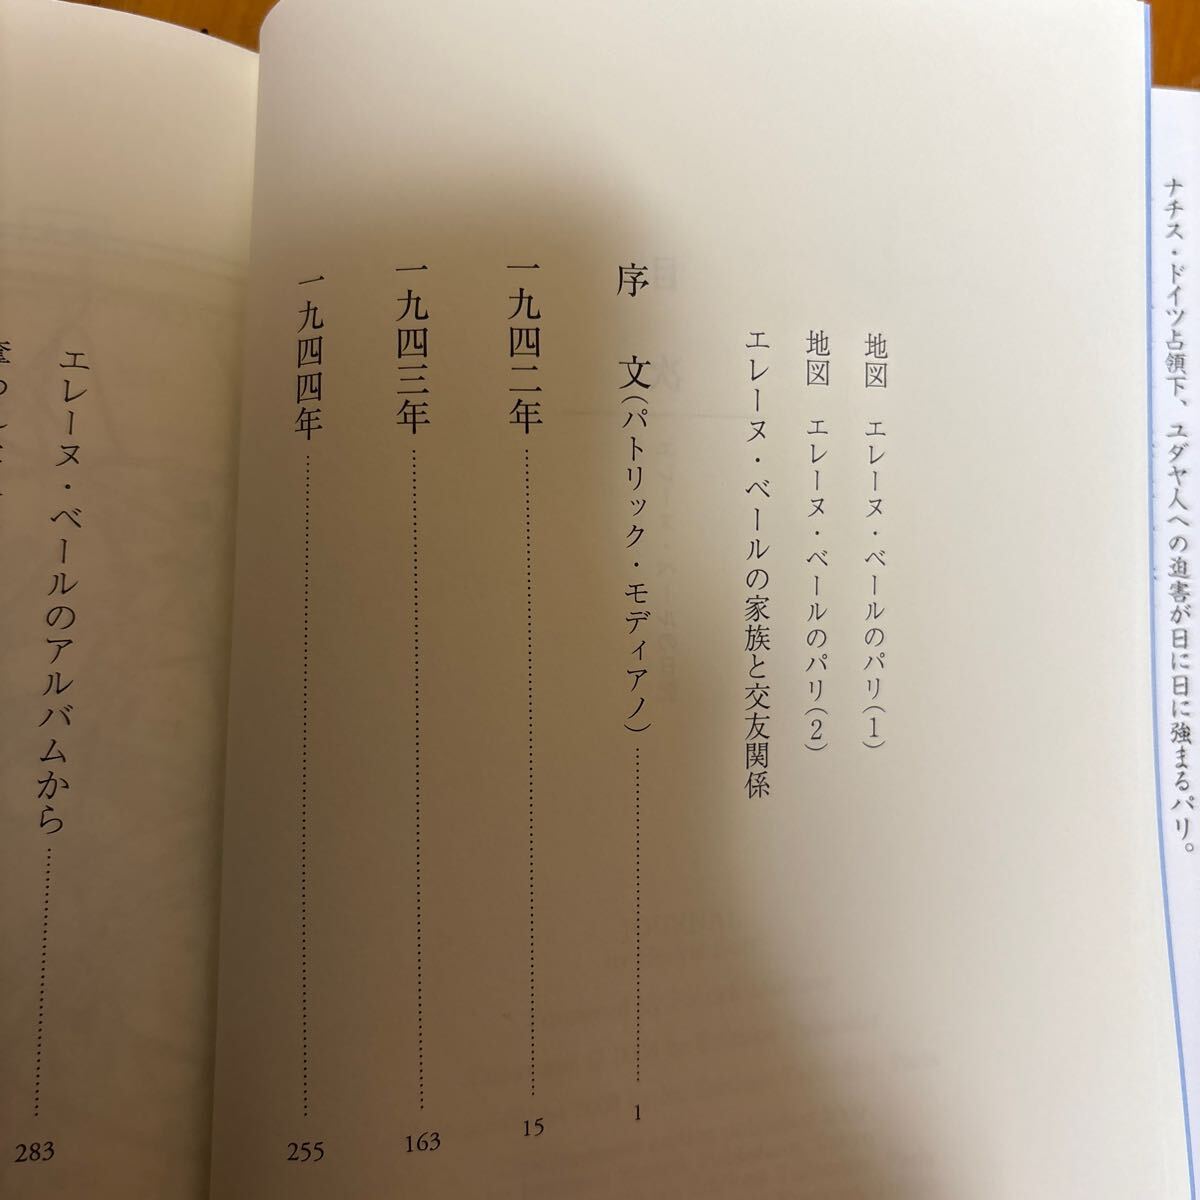 ナチス・ドイツ占領下、ユダヤ人への迫害が日に日に強まるパリ。
地図 エレーヌ・ベールのパリ(1)
地図 エレーヌ・ベールのパリ(2)
エレーヌ・ベールの家族と交友関係
序 文(パトリック・モディアノ)……………… 1
一九四二年……………… 15
一九四三年……………… 163
一九四四年……………… 255
エレーヌ・ベールのアルバムから……………… 283